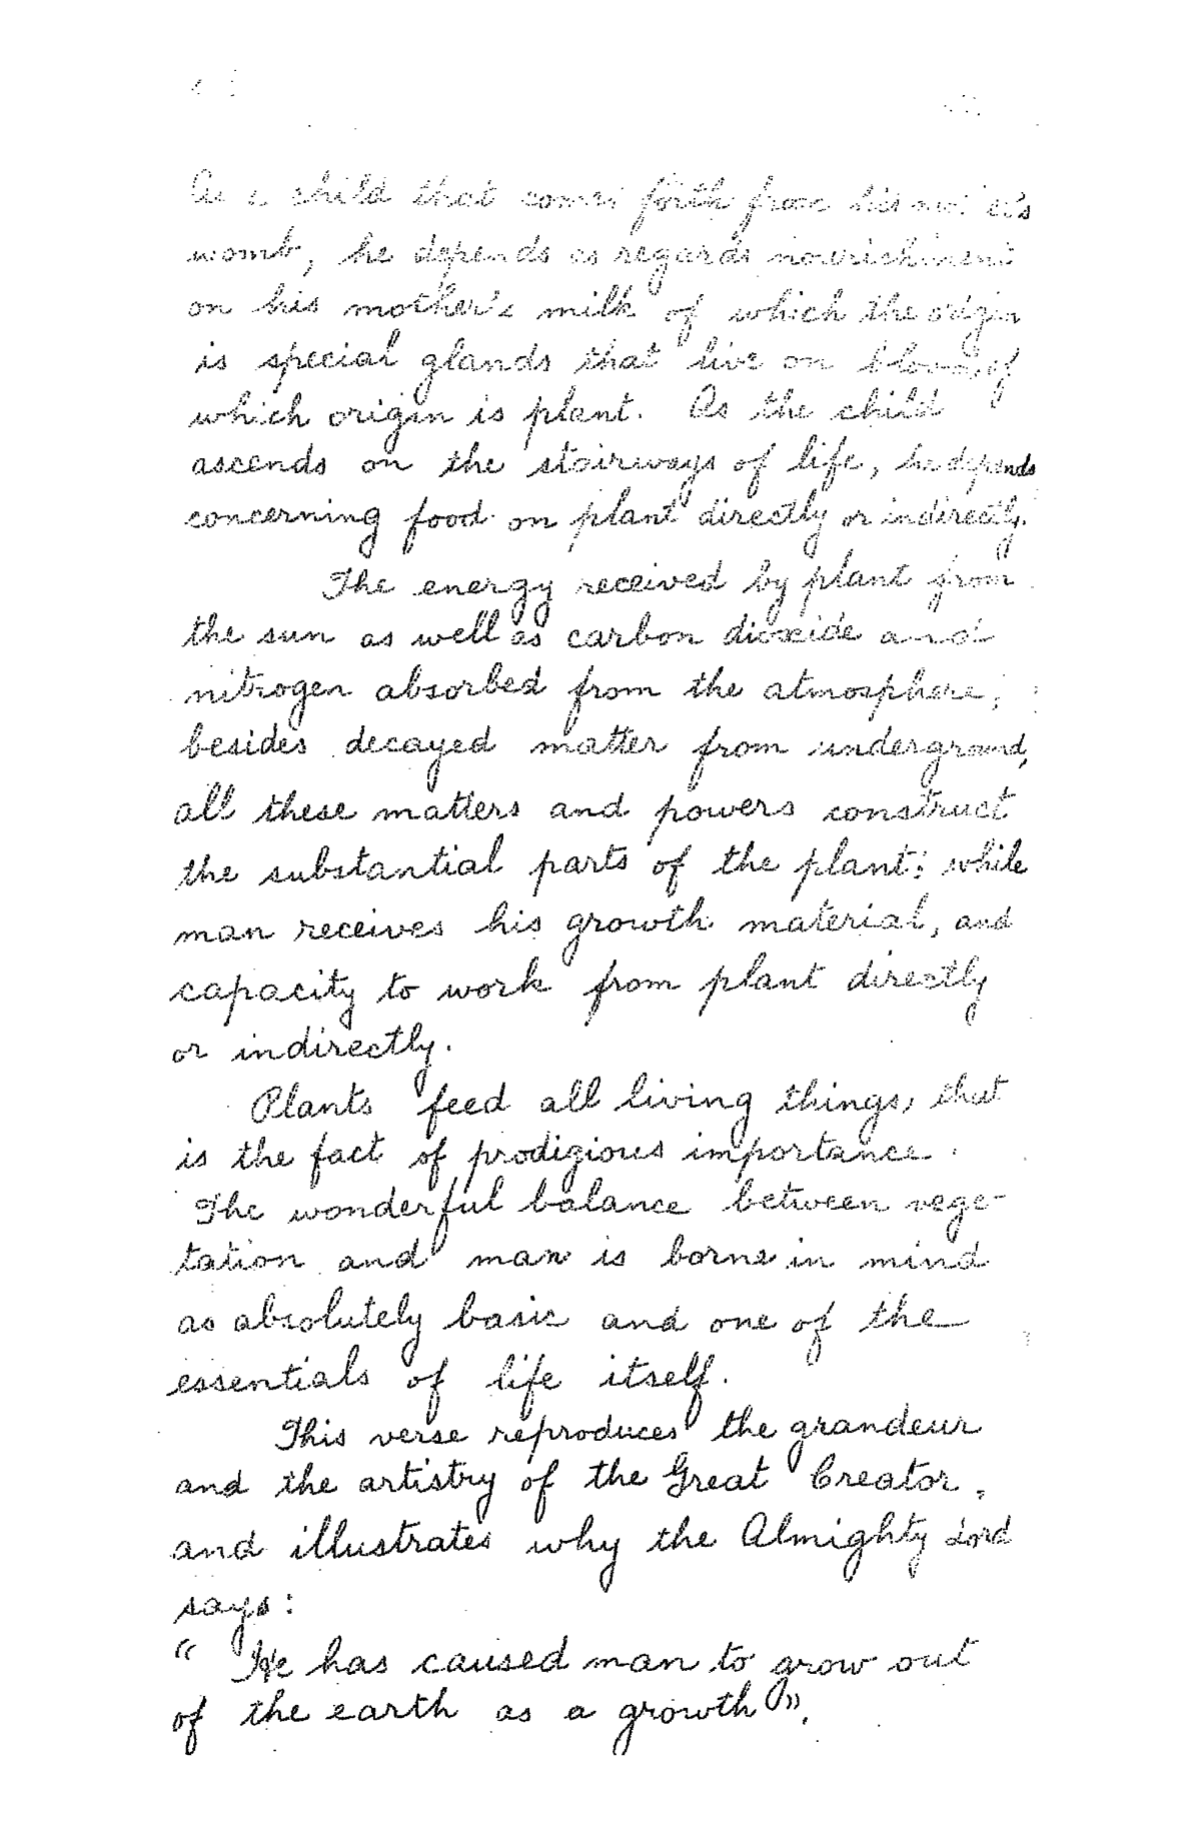 As a child that comes forth from his mother's
womb, he depends as regards nourishment
on his mother's milk of which the origin
is special glands that live on blood, of
which origin is plant. As the child
ascends on the stairways of life, he depends
concerning food on plant directly or indirectly.
The energy received by plant from
the sun as well as carbon dioxide and
nitrogen absorbed from the atmosphere,
besides decayed matter from underground,
all these matters and powers construct
the substantial parts of the plant: while
man receives his growth material, and
capacity to work from plant directly
or indirectly.
Plants feed all living things, that
is the fact of prodigious importance.
The wonderful balance between vege-
tation and man is borne in mind
as absolutely basic and one of the
essentials of life itself.
This verse reproduces the grandeur
and the artistry of the Great Creator,
and illustrates why the Almighty Lord
says:
“ He has caused man to grow out
of the earth as a growth ”.